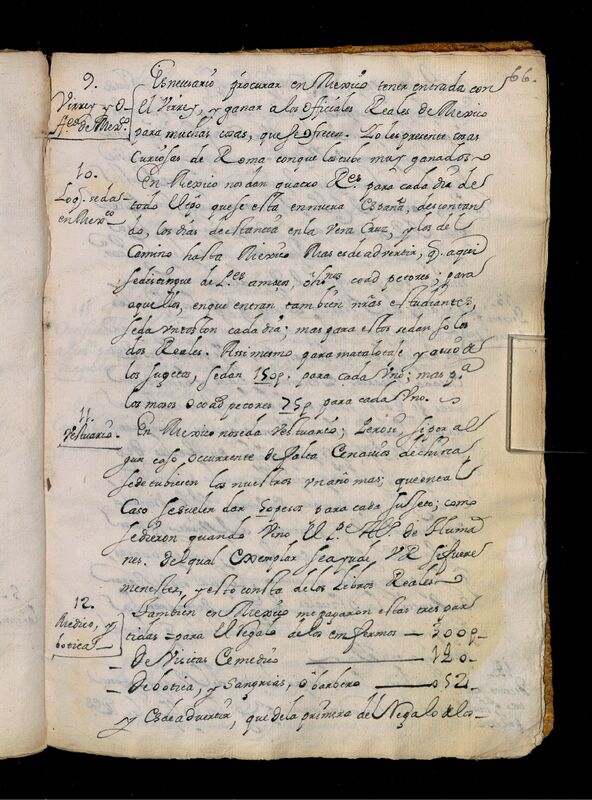 66.
9.
Virrey y O-
ffes de Mexco
Es necesario procurar en Mexico tener entrada con
el Virrey, y ganar a los Officiales Reales de Mexico
para muchas cosas, que se ofrecen. Yo les presente cosas
curiosas de Roma con que los tube muy ganados
10.
Lo q. se da
en Mexco
En Mexico nos dan quatro Rs. para cada dia de
todo el tpo que se esta en nueva España, descontan
do, los dias de estancia en la Vera Cruz, y los del
Camino hasta Mexico Mas es de advertir, q. aqui
se distingue de Pes. a mosos, ó hnos coadpectores; para
aquellos, en que entran tambien nros estudiantes,
se da un toston cada dia; mas para estos se dan solos
dos Reales. Asi mismo para matalotaje y avio de
los sugetos, se dan 150p. para cada Uno; mas pa
los mosos o coadpectores 75p para cada Uno.
11.
Vestuario.
En Mexico no se da Vestuario; Pero si, si por al
gun caso occurrente de falta de navios de china
se detubieren los nuestros un año mas; que en tal
Caso se suelen dar 50pesos para cada susseto; como
se dieron quando Vino el Pe. Alº. de Huma
nes. Del qual exemplar se ayude VR si fuere
menester, y esto consta de los Libros Reales
12.
Medico, y
botica
Tambien en Mexico me pagaron estas tres par
tidas = para el Regalo de los enfermos — 300p-
- De Visitas de medico — 120-
- De botica, y sangrias, o barbero — 052.
y es de advertir, que de la primera del Regalo de los-